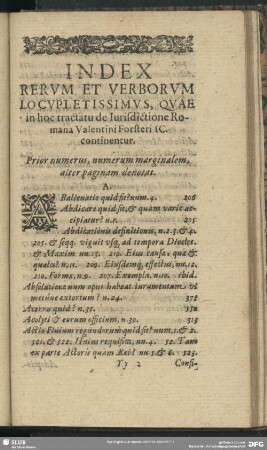 INDEX
RERVM ET VERBORVM
LOCVPLETISSIMVS, QVAE
in hoc tractatu de Iurisdictione Ro-
mana Valentini Forsteri IC.
continentur.
Prior numerus, numerum marginalem,
alter paginam denotat.
A.
Balienatio quid sit? num. 4. 208
Abdicare quid sit, & quam varie ac-
cipiatur? n.1. 205
Abdicationis definitiones, n.1.2.3. & 4.
205. & seqq. viguit usq, ad tempora Diocletiani
& Maxim. 219. Eius causæ quæ &
quales? n.11. 209. Eiusdemq, effectus, nn.12.
210. Forma, 207. Exempla, ibid.
Absolutione num opus habeat iuramentum vi
metúve extortum? n.24. 371
Acerra quid? n.31. 350
Acolyti & eorum officium, n.30. 515
Actio Finium regundorum quid sit? num.1. & 2.
521. & 522. Huius requisita, nn.4. 52. Tam
ex parte Actoris quam Rei? nn.5 & 6. 523.
Yy 2 Consi-
SLUB